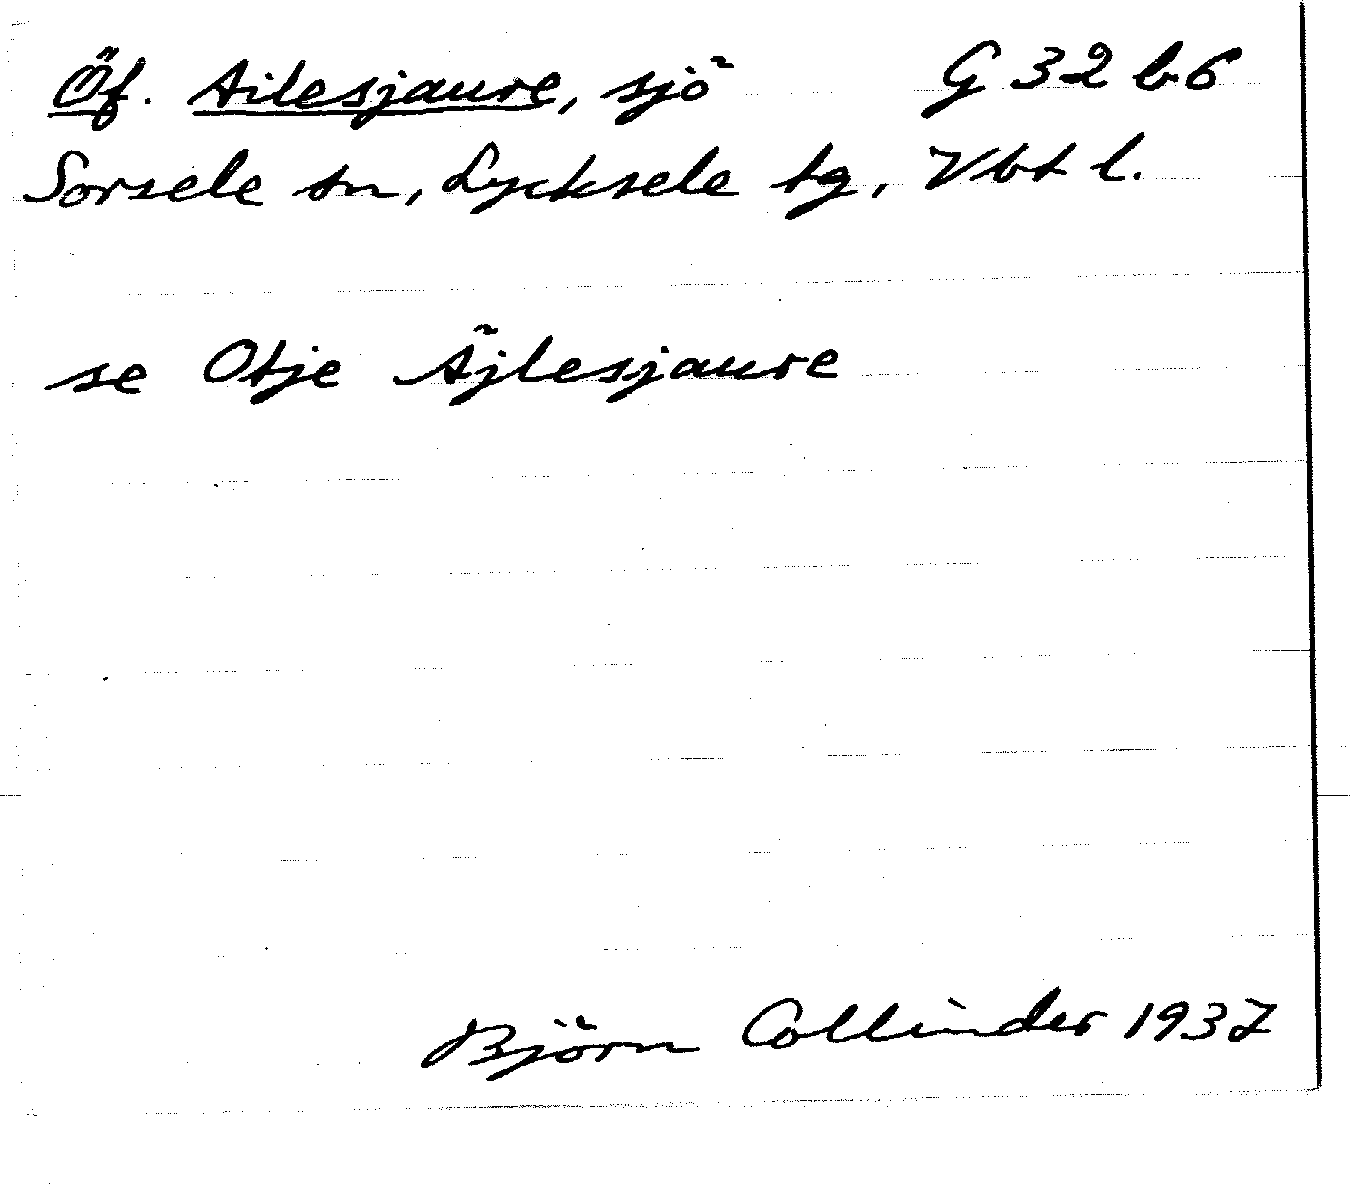 Öf. Ailesjaure, sjö G 32 b 6
Sorsele sn, Lycksele tg, Vbt l.
se Otje Äjlesjaure
Björn Collinder 1937